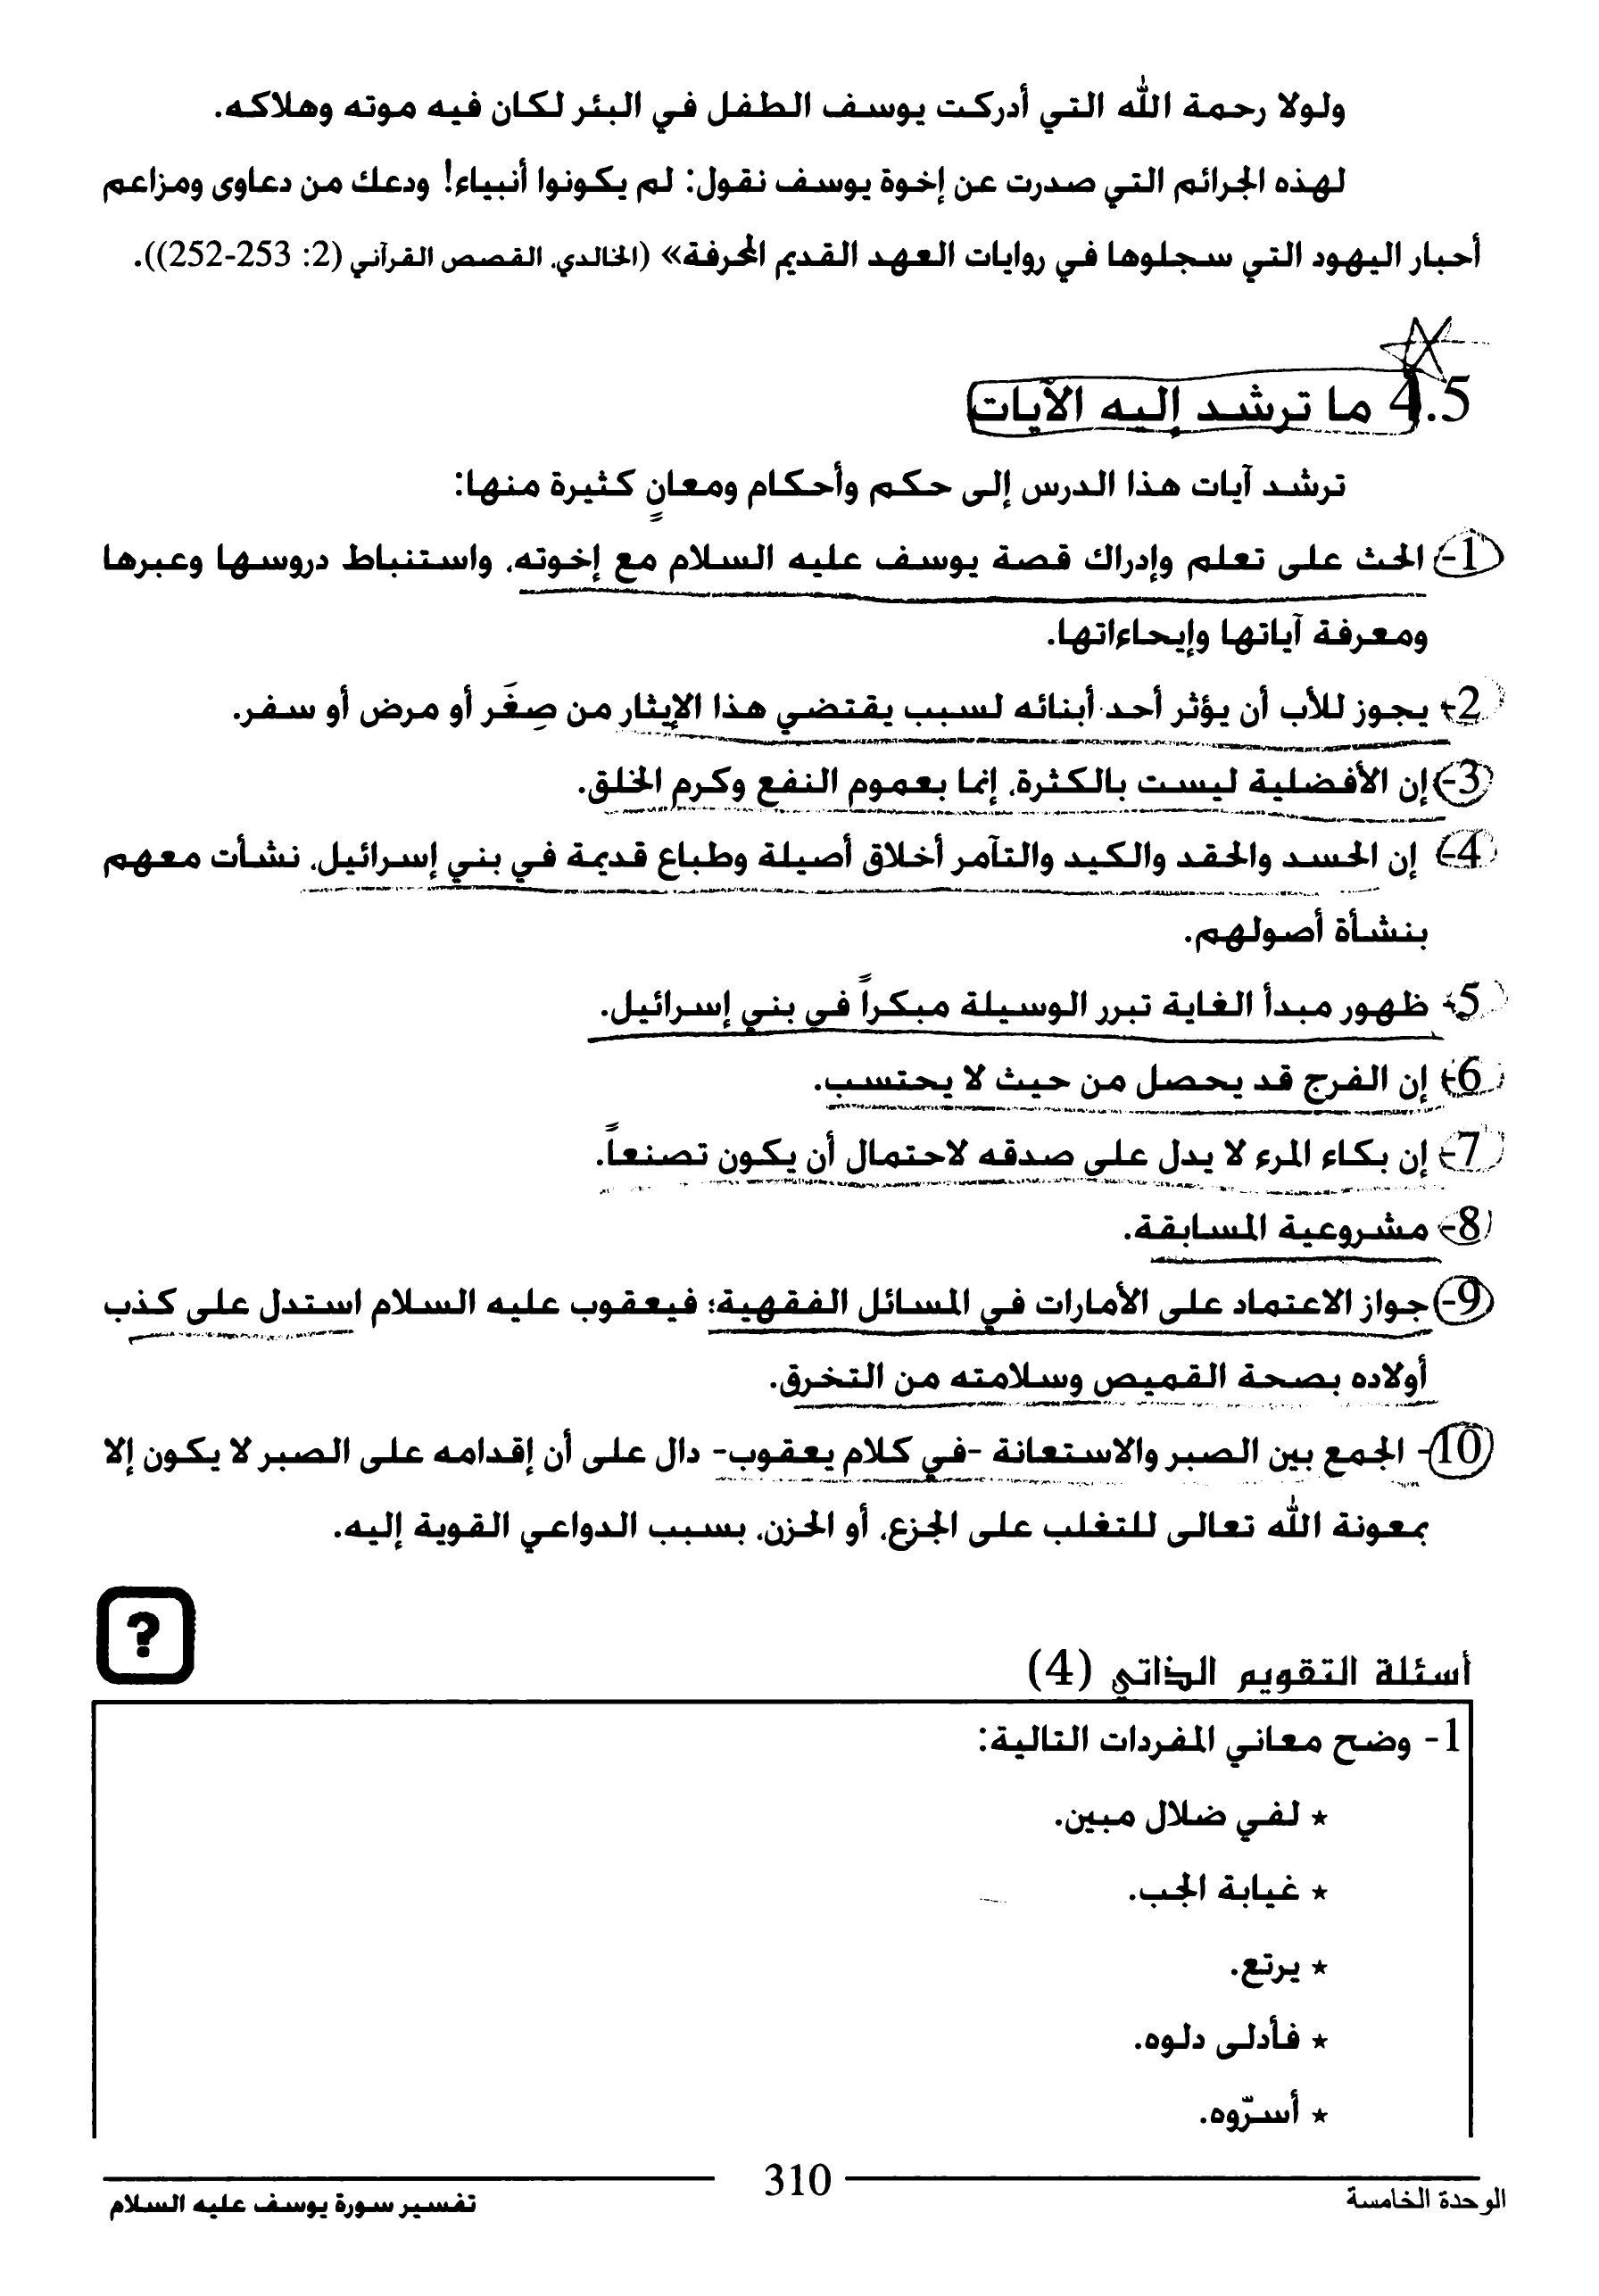 ولولا رحمة الله التي أدركت يوسف الطفل في البئر لكان فيه موته وهلاكه.
لهذه الجرائم التي صدرت عن إخوة يوسف نقول: لم يكونوا أنبياء! ودعك من دعاوى ومزاعم
أحبار اليهود التي سجلوها في روايات العهد القديم المحرفة» (الخالدي، القصص القرآني (2: 253-252)).
4.5 ما ترشد إليه الآيات
ترشد آيات هذا الدرس إلى حكم وأحكام ومعانٍ كثيرة منها:
1- الحث على تعلم وإدراك قصة يوسف عليه السلام مع إخوته، واستنباط دروسها وعبرها
ومعرفة آياتها وإيحاءاتها.
2- يجوز للأب أن يؤثر أحد أبنائه لسبب يقتضي هذا الإيثار من صِغَر أو مرض أو سفر.
3- إن الأفضلية ليست بالكثرة، إنما بعموم النفع وكرم الخلق.
4- إن الحسد والحقد والكيد والتآمر أخلاق أصيلة وطباع قديمة في بني إسرائيل، نشأت معهم
بنشأة أصولهم.
5- ظهور مبدأ الغاية تبرر الوسيلة مبكراً في بني إسرائيل.
6- إن الفرج قد يحصل من حيث لا يحتسب.
7- إن بكاء المرء لا يدل على صدقه لاحتمال أن يكون تصنعاً.
8- مشروعية المسابقة.
9- جواز الاعتماد على الأمارات في المسائل الفقهية؛ فيعقوب عليه السلام استدل على كذب
أولاده بصحة القميص وسلامته من التخرق.
10- الجمع بين الصبر والاستعانة -في كلام يعقوب- دال على أن إقدامه على الصبر لا يكون إلا
بمعونة الله تعالى للتغلب على الجزع، أو الحزن، بسبب الدواعي القوية إليه.
?
أسئلة التقويم الذاتي (4)
1- وضح معاني المفردات التالية:
★ لفي ضلال مبين.
★ غيابة الجب.
★ يرتع.
★ فأدلى دلوه.
★ أسرّوه.
الوحدة الخامسة 310 تفسير سورة يوسف عليه السلام